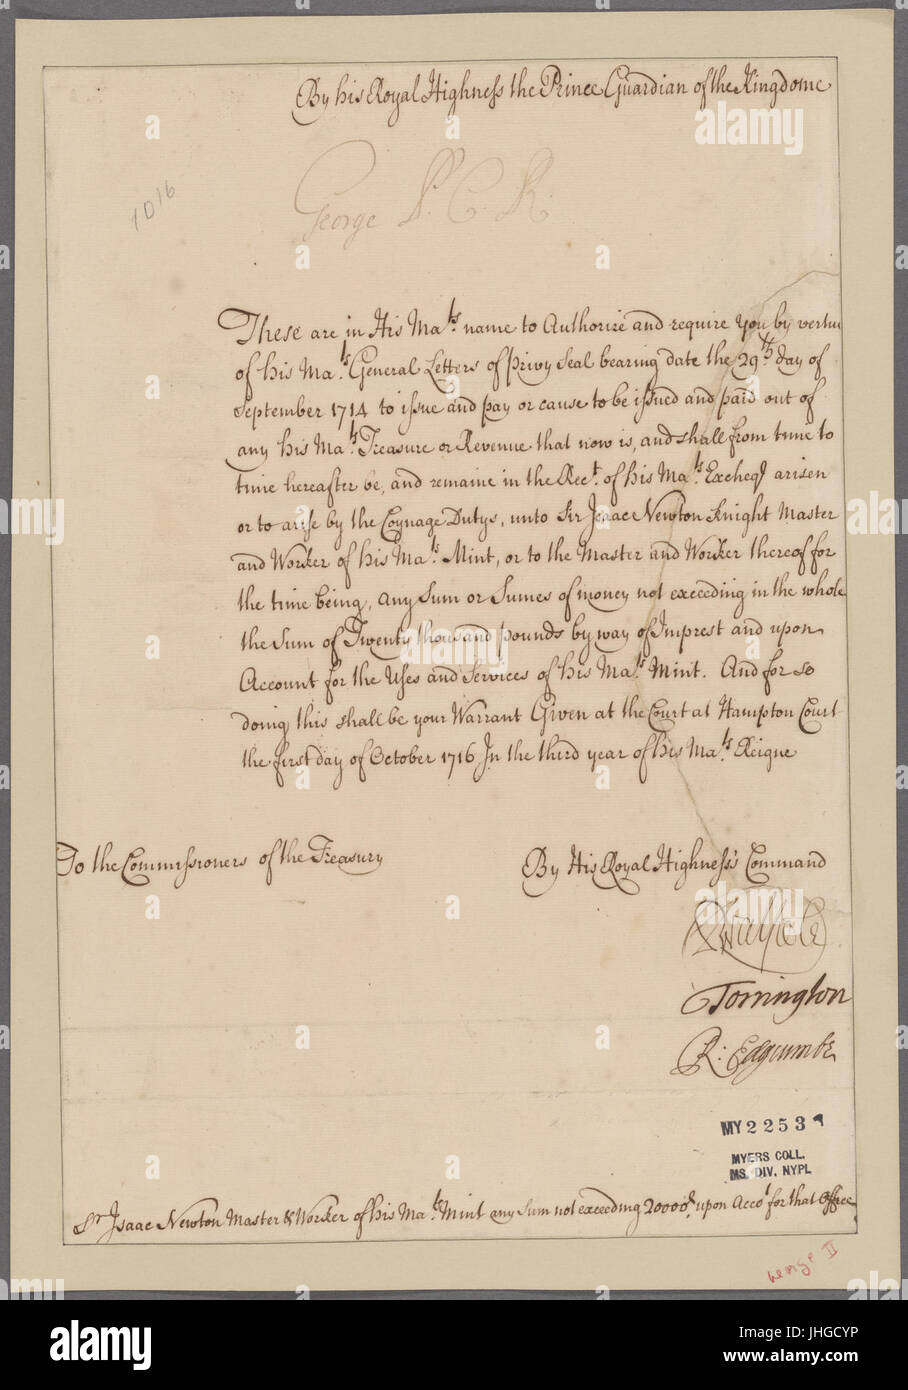 By his Royal Highness the Prince Guardian of the Kingdome
George P. C. R.
1016
These are in His Ma.ts name to Authorize and require You by vertue
of his Ma.ts General Letters of privy Seal bearing date the 29.th day of
September 1714 to issue and pay or cause to be issued and paid out of
any his Ma.ts Treasure or Revenue that now is, and shall from time to
time hereafter be, and remaine in the Rec.t of his Ma.ts Excheq.r arisen
or to arise by the Coynage Dutys, unto Sir Isaac Newton Knight Master
and Worker of his Ma.ts Mint, or to the Master and Worker thereof for
the time being, any Sum or Sumes of money not exceeding in the whole
the Sum of Twenty thousand pounds by way of Imprest and upon
Account for the Uses and Services of his Ma.ts Mint. And for so
doing this shall be your Warrant Given at the Court at Hampton Court
the first day of October 1716 In the third year of his Ma.ts Reigne
To the Commissioners of the Treasury
By His Royal Highness's Command
Torrington
R: Edgcumbe
MY 2253
MYERS COLL.
MS. DIV. NYPL
Sr Isaac Newton Master & Worker of his Ma.ts Mint any Sum not exceeding 20000.l upon Acco.t for that Office
George II
alamy
a
alamy stock photo
Image ID: JHGCYP
www.alamy.com